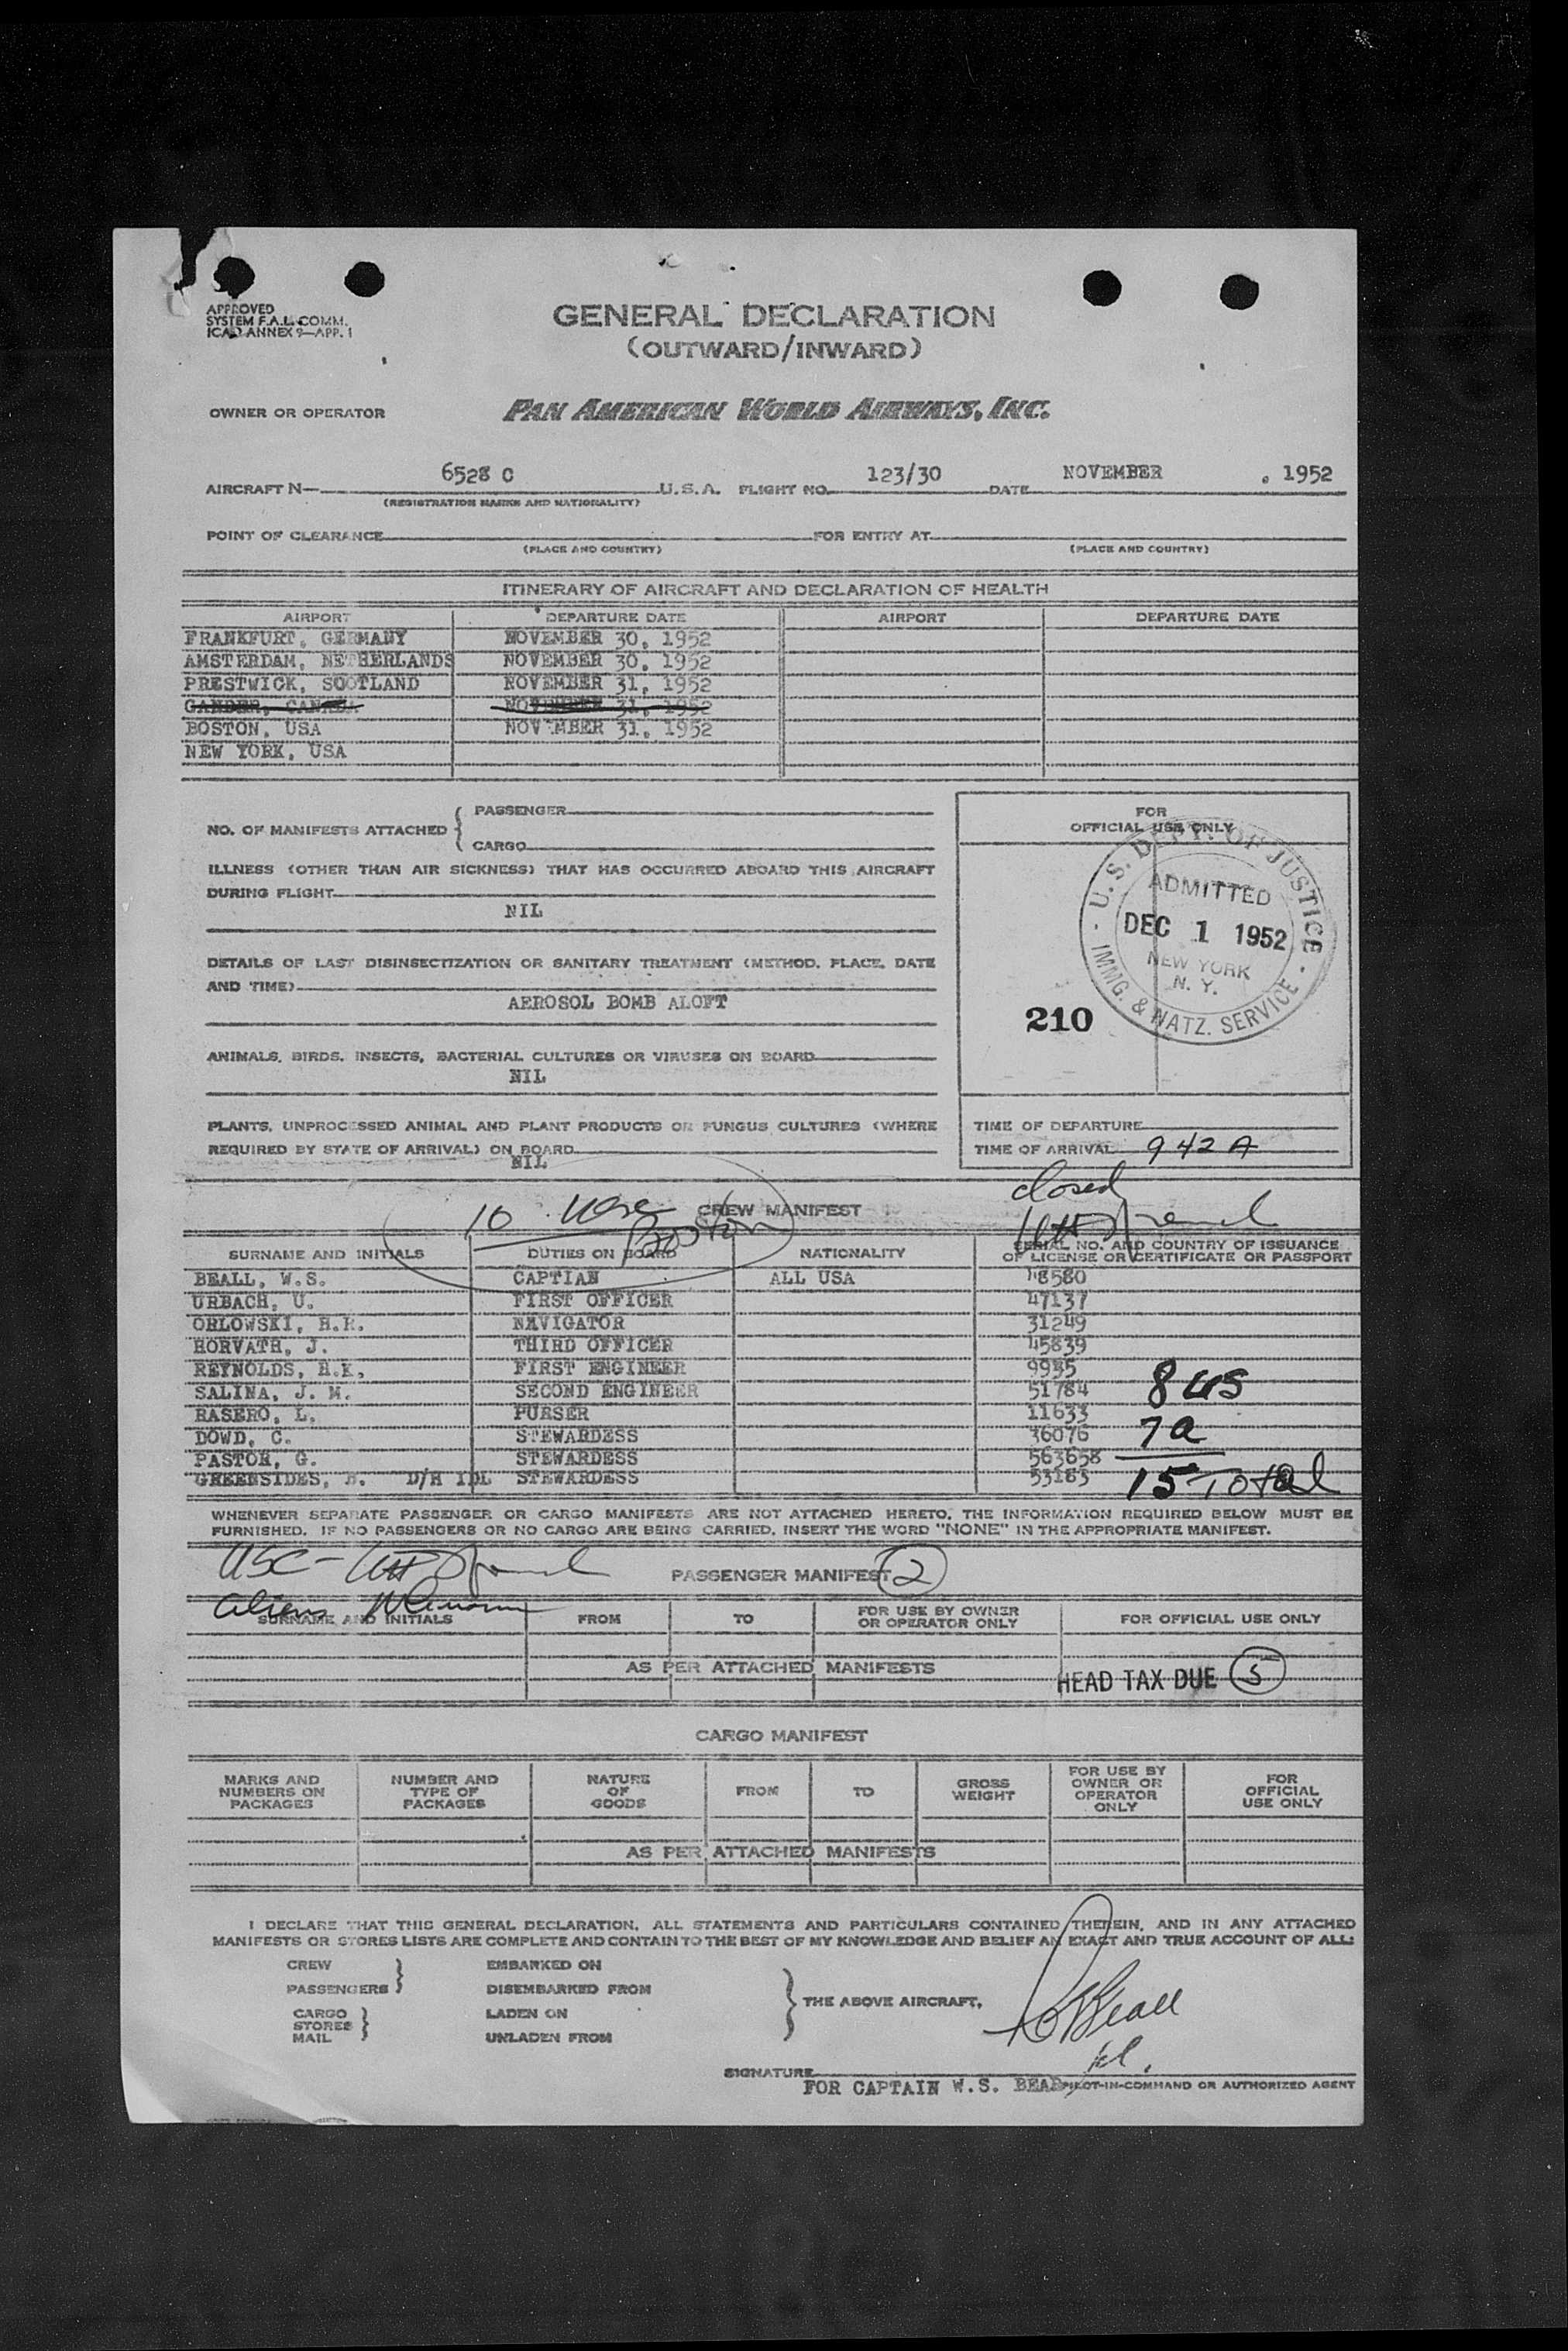 APPROVED
SYSTEM F.A.L. COMM.
ICAO ANNEX 9—APP. 1
GENERAL DECLARATION
(OUTWARD/INWARD)
OWNER OR OPERATOR PAN AMERICAN WORLD AIRWAYS, INC.
AIRCRAFT N— 6528 C U.S.A. FLIGHT NO. 123/30 DATE NOVEMBER . 1952
(REGISTRATION MARKS AND NATIONALITY)
POINT OF CLEARANCE FOR ENTRY AT
(PLACE AND COUNTRY) (PLACE AND COUNTRY)
ITINERARY OF AIRCRAFT AND DECLARATION OF HEALTH
AIRPORT DEPARTURE DATE AIRPORT DEPARTURE DATE
FRANKFURT, GERMANY NOVEMBER 30, 1952
AMSTERDAM, NETHERLANDS NOVEMBER 30, 1952
PRESTWICK, SCOTLAND NOVEMBER 31, 1952
GANDER, CANADA NOVEMBER 31, 1952
BOSTON, USA NOVEMBER 31, 1952
NEW YORK, USA
NO. OF MANIFESTS ATTACHED { PASSENGER
CARGO
ILLNESS (OTHER THAN AIR SICKNESS) THAT HAS OCCURRED ABOARD THIS AIRCRAFT
DURING FLIGHT
NIL
DETAILS OF LAST DISINSECTIZATION OR SANITARY TREATMENT (METHOD, PLACE, DATE
AND TIME)
AEROSOL BOMB ALOFT
ANIMALS, BIRDS, INSECTS, BACTERIAL CULTURES OR VIRUSES ON BOARD
NIL
PLANTS, UNPROCESSED ANIMAL AND PLANT PRODUCTS OR FUNGUS CULTURES (WHERE
REQUIRED BY STATE OF ARRIVAL) ON BOARD
NIL
FOR
OFFICIAL USE ONLY
U.S. DEPT. OF JUSTICE
ADMITTED
DEC 1 1952
NEW YORK
N. Y.
IMMG. & NATZ. SERVICE
210
TIME OF DEPARTURE
TIME OF ARRIVAL 942 A
closed
10 USC Boston
CREW MANIFEST
SURNAME AND INITIALS DUTIES ON BOARD NATIONALITY SERIAL NO. AND COUNTRY OF ISSUANCE
OF LICENSE OR CERTIFICATE OR PASSPORT
BEALL, W.S. CAPTIAN ALL USA 48580
URBACH, U. FIRST OFFICER 47137
ORLOWSKI, H.R. NAVIGATOR 31249
HORVATH, J. THIRD OFFICER 45839
REYNOLDS, H.K. FIRST ENGINEER 9935
SALINA, J. M. SECOND ENGINEER 51784
RASERO, L. PURSER 11633
DOWD, C. STEWARDESS 36076
PASTOR, G. STEWARDESS 563658
GREENSIDES, B. D/H IDL STEWARDESS 53183
8 US
7 a
15 Total
WHENEVER SEPARATE PASSENGER OR CARGO MANIFESTS ARE NOT ATTACHED HERETO, THE INFORMATION REQUIRED BELOW MUST BE
FURNISHED. IF NO PASSENGERS OR NO CARGO ARE BEING CARRIED, INSERT THE WORD "NONE" IN THE APPROPRIATE MANIFEST.
USC-
PASSENGER MANIFEST 2
Aliens
SURNAME AND INITIALS FROM TO FOR USE BY OWNER
OR OPERATOR ONLY FOR OFFICIAL USE ONLY
AS PER ATTACHED MANIFESTS
HEAD TAX DUE 5
CARGO MANIFEST
MARKS AND
NUMBERS ON
PACKAGES
NUMBER AND
TYPE OF
PACKAGES
NATURE
OF
GOODS
FROM
TO
GROSS
WEIGHT
FOR USE BY
OWNER OR
OPERATOR
ONLY
FOR
OFFICIAL
USE ONLY
AS PER ATTACHED MANIFESTS
I DECLARE THAT THIS GENERAL DECLARATION, ALL STATEMENTS AND PARTICULARS CONTAINED THEREIN, AND IN ANY ATTACHED
MANIFESTS OR STORES LISTS ARE COMPLETE AND CONTAIN TO THE BEST OF MY KNOWLEDGE AND BELIEF AN EXACT AND TRUE ACCOUNT OF ALL:
CREW EMBARKED ON
PASSENGERS } DISEMBARKED FROM
CARGO LADEN ON
STORES }
MAIL UNLADEN FROM
} THE ABOVE AIRCRAFT.
Beall
SIGNATURE
FOR CAPTAIN W.S. BEALL PILOT-IN-COMMAND OR AUTHORIZED AGENT